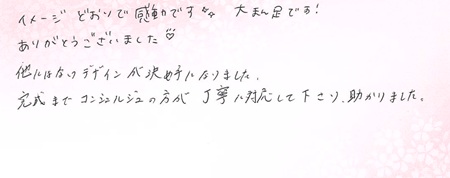 イメージどおりで感動です 大まん足です!
ありがとうございました♡
他にはないデザインが決め手になりました。
完成までコンシェルジュの方が丁寧に対応して下さり、助かりました。